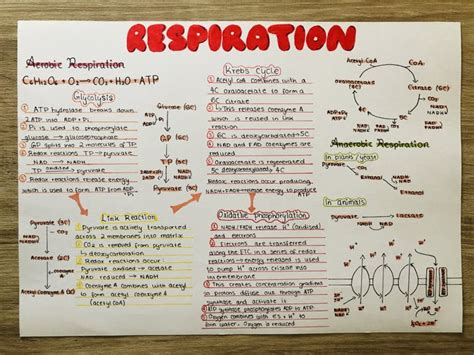 RESPIRATION
Aerobic Respiration
C6H12O6 + O2 → CO2 + H2O + ATP
Glycolysis
① ATP hydrolase breaks down
2ATP into ADP + Pi
② Pi is used to phosphorylate
glucose → glucosephosphate
③ GP splits into 2 molecules of TP
④ Redox reactions TP → Pyruvate
NAD → NADH
TP oxidised → Pyruvate
⑤ Redox reactions release energy
which is used to form ATP from ADP
+ Pi
Glucose (6C)
(6C)
(3C)
Pyruvate (3C)
Link Reaction
① Pyruvate is actively transported
across 2 membranes into matrix
② CO2 is removed from pyruvate
↳ decarboxylation
③ Redox reactions occur
Pyruvate oxidised → acetate
NAD reduced → NADH
④ Coenzyme A combines with acetate
to form acetyl coenzyme A
(acetyl CoA)
Pyruvate (3C)
NAD
NADH
Acetyl Coenzyme A (2C)
Krebs Cycle
① Acetyl CoA combines with a
4C oxaloacetate to form a
6C citrate
② This releases coenzyme A
which is reused in link
reaction
③ 6C is decarboxylated → 5C
④ NAD and FAD coenzymes are
reduced
⑤ Oxaloacetate is regenerated
5C decarboxylated → 4C
Redox reactions occur producing
NADH + FADH → release energy to produce
ATP
Oxidative Phosphorylation
① NADH/FADH release H+ (oxidised)
and electrons
② Electrons are transferred
along the ETC in a series of redox
reactions → energy released is used
to pump H+ across cristae into
inner-membrane
③ This creates concentration gradient
so protons diffuse through ATP
synthase and activate it
④ ATP synthase phosphorylates ADP to ATP
⑤ Oxygen combines with e's + H+ to
form water. Oxygen is reduced
Acetyl CoA
CoA
Oxaloacetate
(4C)
Citrate
(6C)
Anaerobic Respiration
In plants/yeast
Pyruvate
Ethanal
Ethanol
In animals
Pyruvate
Lactate